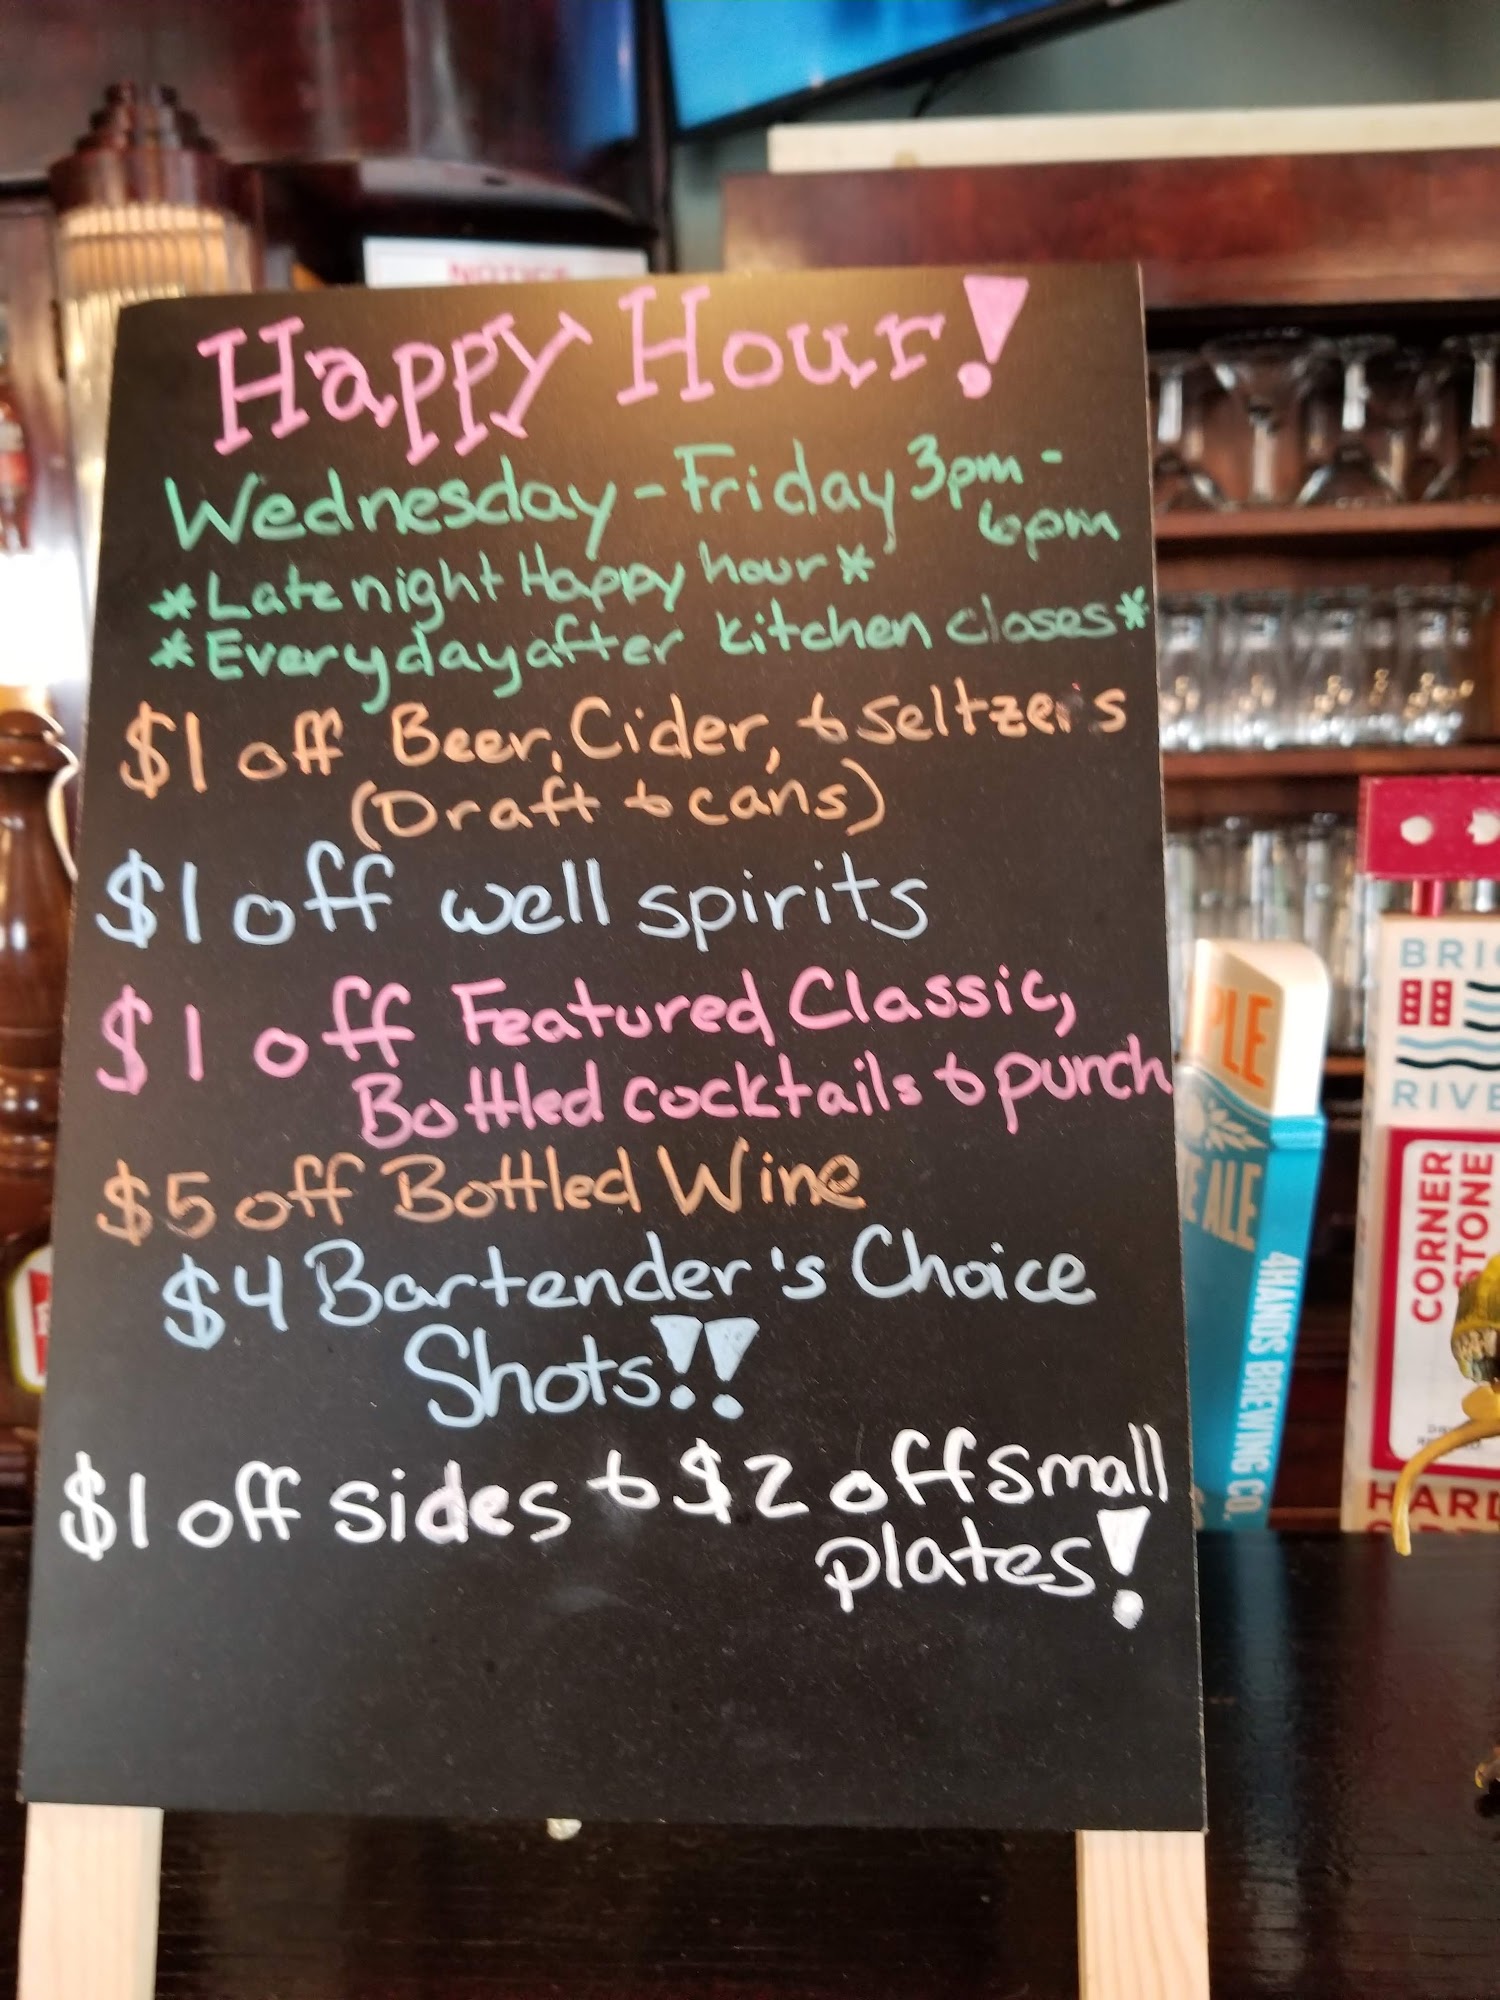 NOTICE
Happy Hour!
Wednesday - Friday 3pm -
6pm
*Late night Happy hour*
*Everyday after kitchen closes*
$1 off Beer, Cider, & Seltzers
(Draft & cans)
$1 off well spirits
$1 off Featured Classic,
Bottled cocktails & punch
$5 off Bottled Wine
$4 Bartender's Choice
Shots!!
$1 off sides & $2 off small
plates!
PLE
ALE
4HANDS BREWING CO.
BRIC
RIVE
CORNER
STONE
HARD